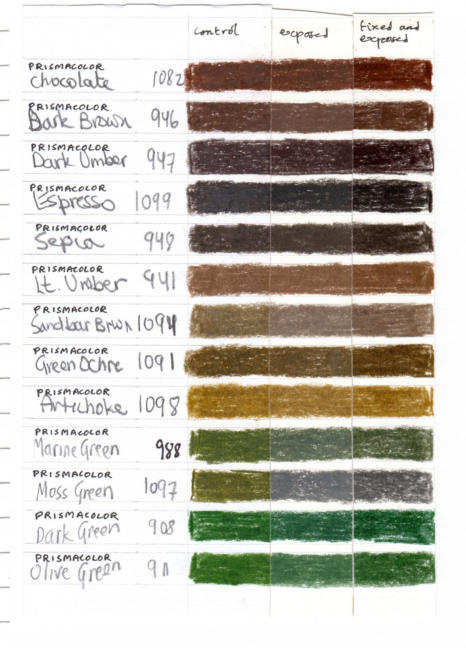 control exposed fixed and
exposed
PRISMACOLOR
Chocolate 1082
PRISMACOLOR
Dark Brown 946
PRISMACOLOR
Dark Umber 947
PRISMACOLOR
Espresso 1099
PRISMACOLOR
Sepia 948
PRISMACOLOR
Lt. Umber 941
PRISMACOLOR
Sandbar Brwn 1094
PRISMACOLOR
Green Ochre 1091
PRISMACOLOR
Artichoke 1098
PRISMACOLOR
Marine Green 988
PRISMACOLOR
Moss Green 1097
PRISMACOLOR
Dark Green 908
PRISMACOLOR
Olive Green 911